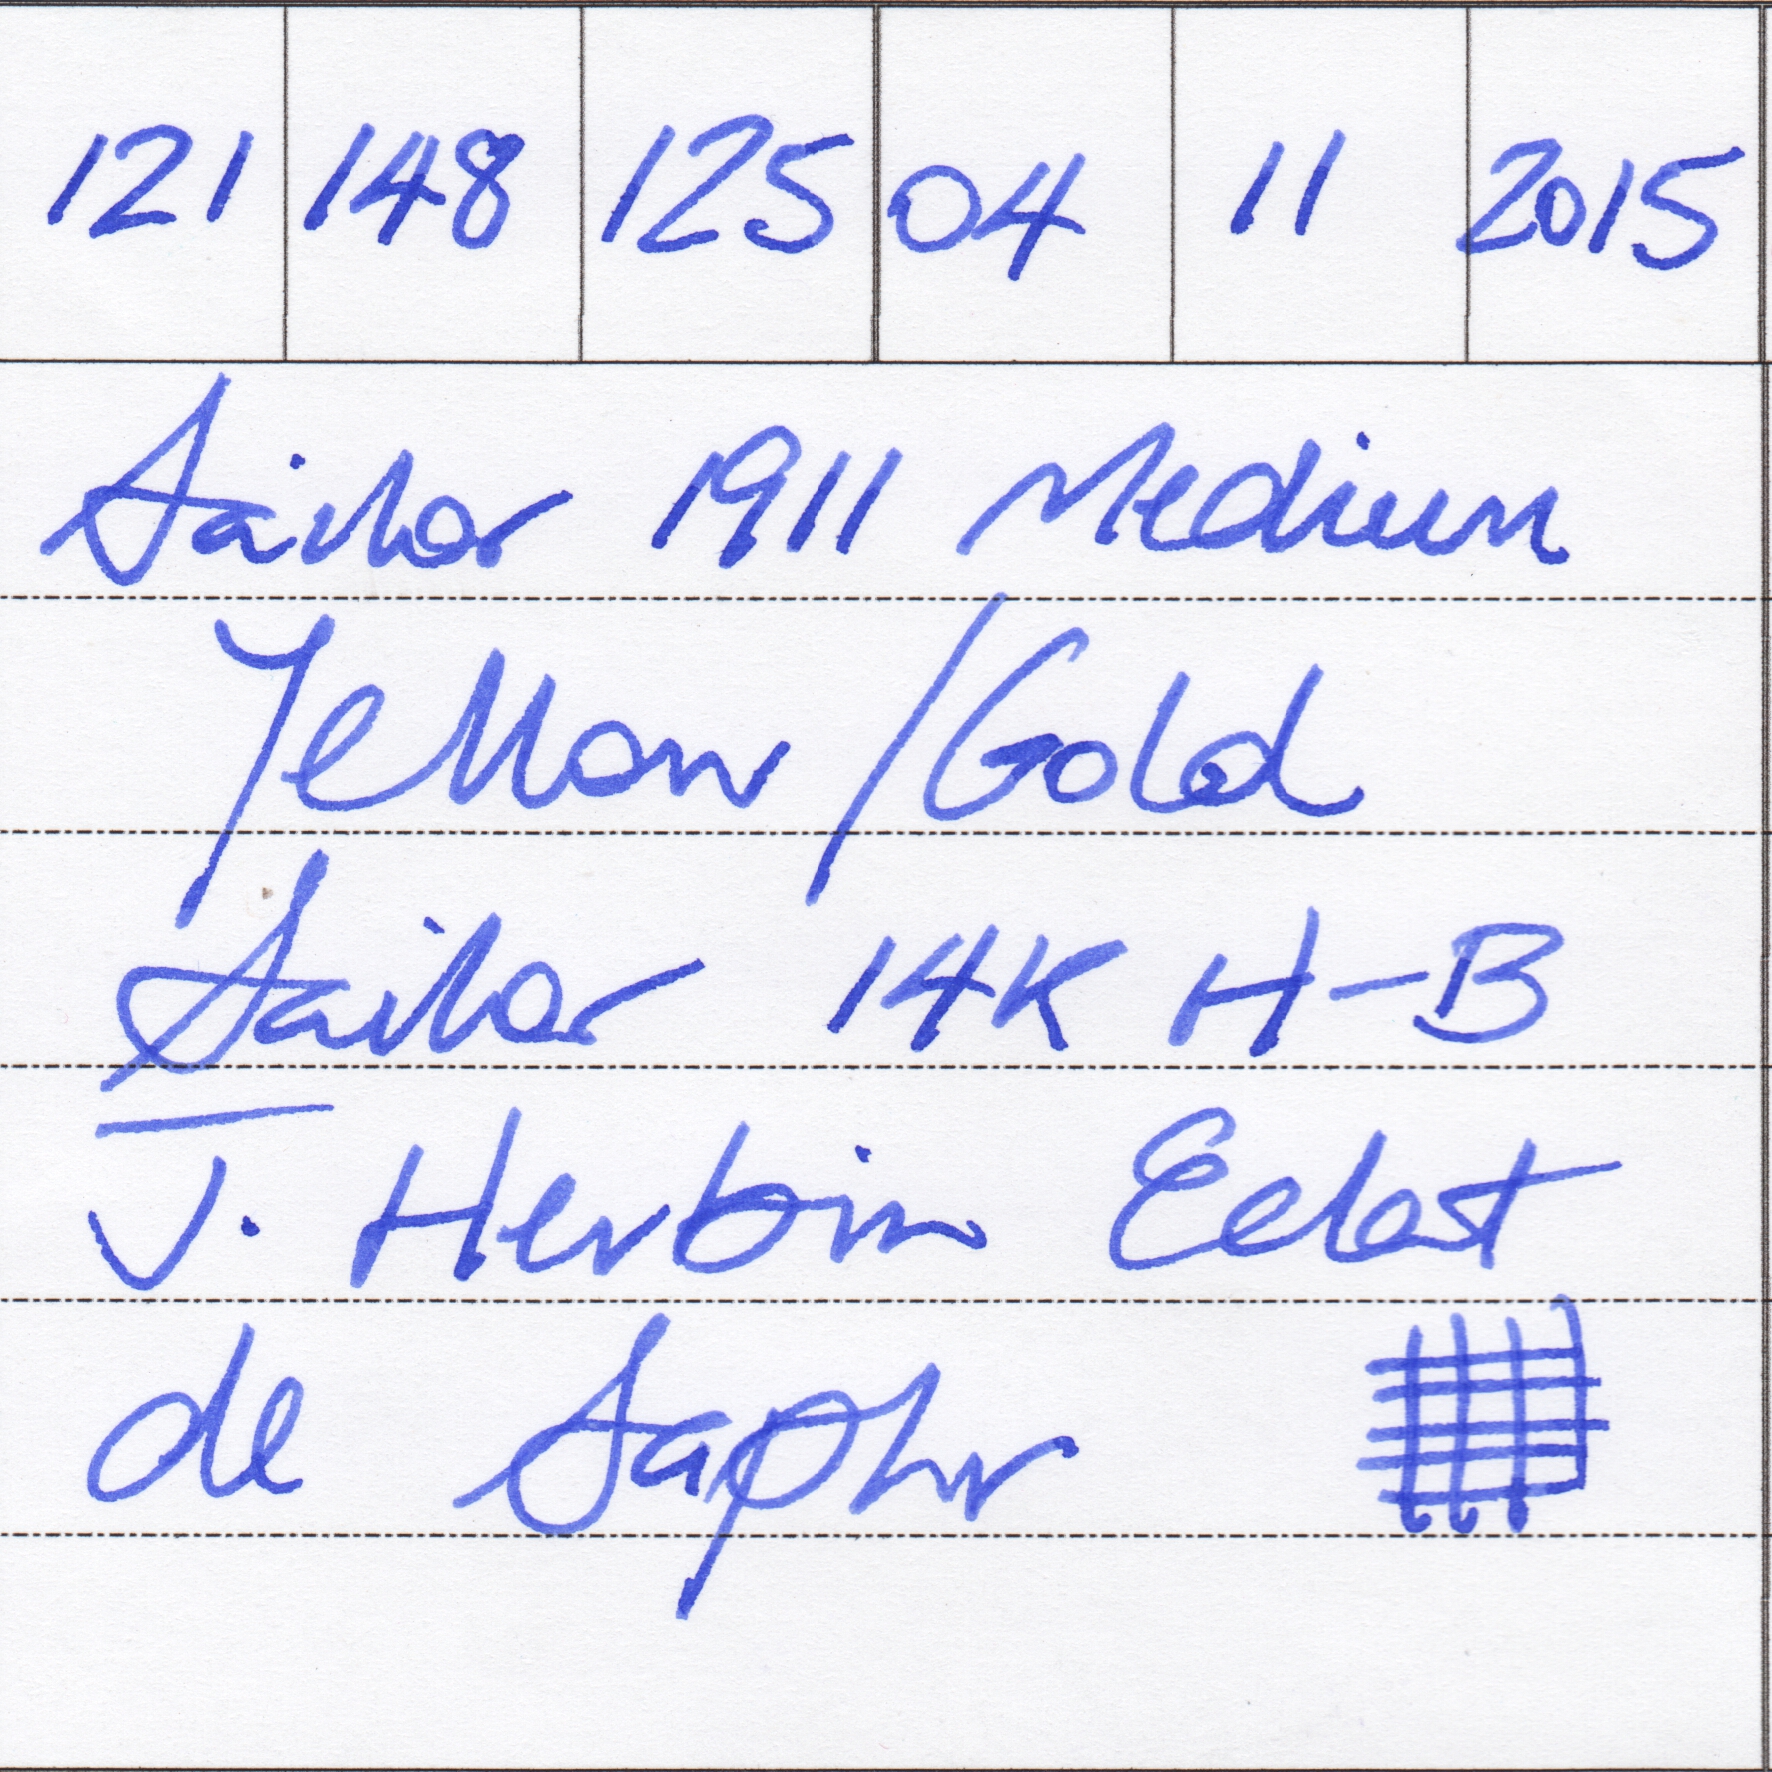 121 148 125 04 11 2015
Sailor 1911 Medium
Yellow/Gold
Sailor 14K H-B
J. Herbin Eclat
de Saphir